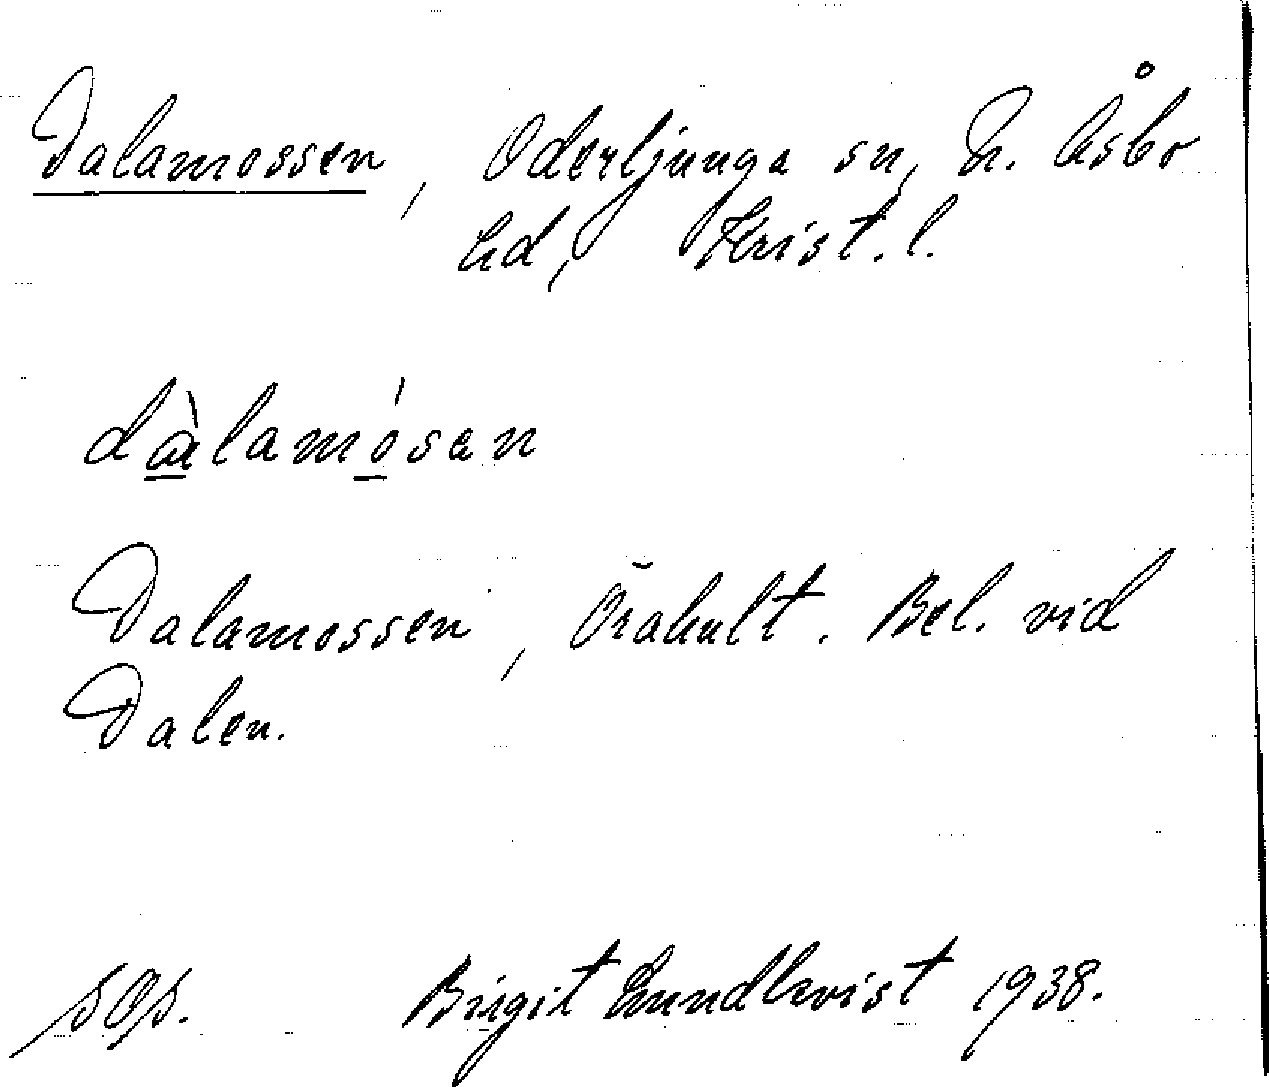 Dalamossen, Oderljunga sn, N. Åsbo
hd, Krist. l.
dàlamósen
Dalamossen, Örahult. Bel. vid
Dalen.
Birgit Lundkvist 1938.